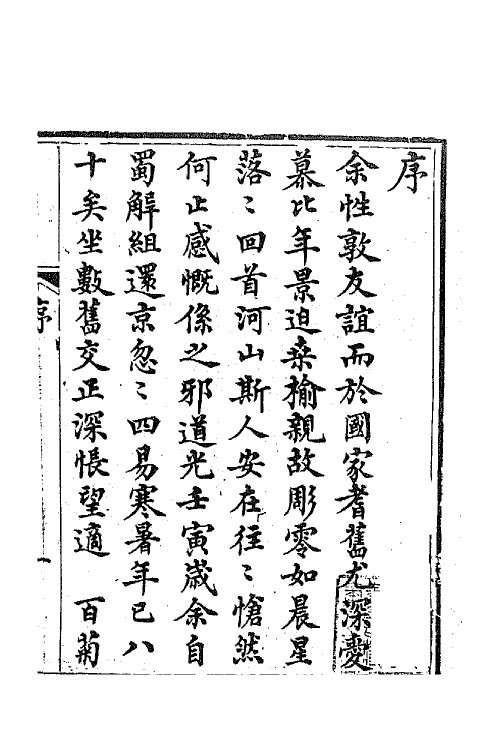 序
余性敦友誼而於國家耆舊尤深愛
慕比年景迫桑榆親故彫零如晨星
落〻回首河山斯人安在往〻愴然
何止感慨係之邪道光壬寅歲余自
蜀解組還京忽〻四易寒暑年已八
十矣坐數舊交正深悵望適　百菊
序
一